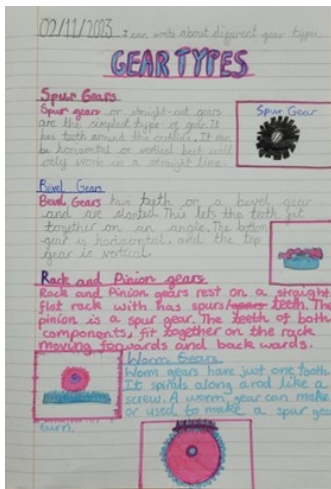 02/11/2023 I can write about different gear types
GEAR TYPES
Spur Gears
Spur gears or straight-cut gears
are the simplest type of gear. It
has teeth around the outside. It can
be horizontal or vertical but will
only work in a straight line.
Spur Gear
Bevel Gears
Bevel Gears have teeth on a bevel gear
and are slanted. This lets the teeth fit
together on an angle. The bottom
gear is horizontal, and the top
gear is vertical.
Rack and Pinion gears
Rack and Pinion gears rest on a straight
flat rack with has spurs teeth. The
pinion is a spur gear. The teeth of both
components, fit together on the rack
moving forwards and back wards.
Worm Gears
Worm gears have just one tooth.
It spirals along a rod like a
screw. A worm gear can make
or used to make a spur gear
turn.